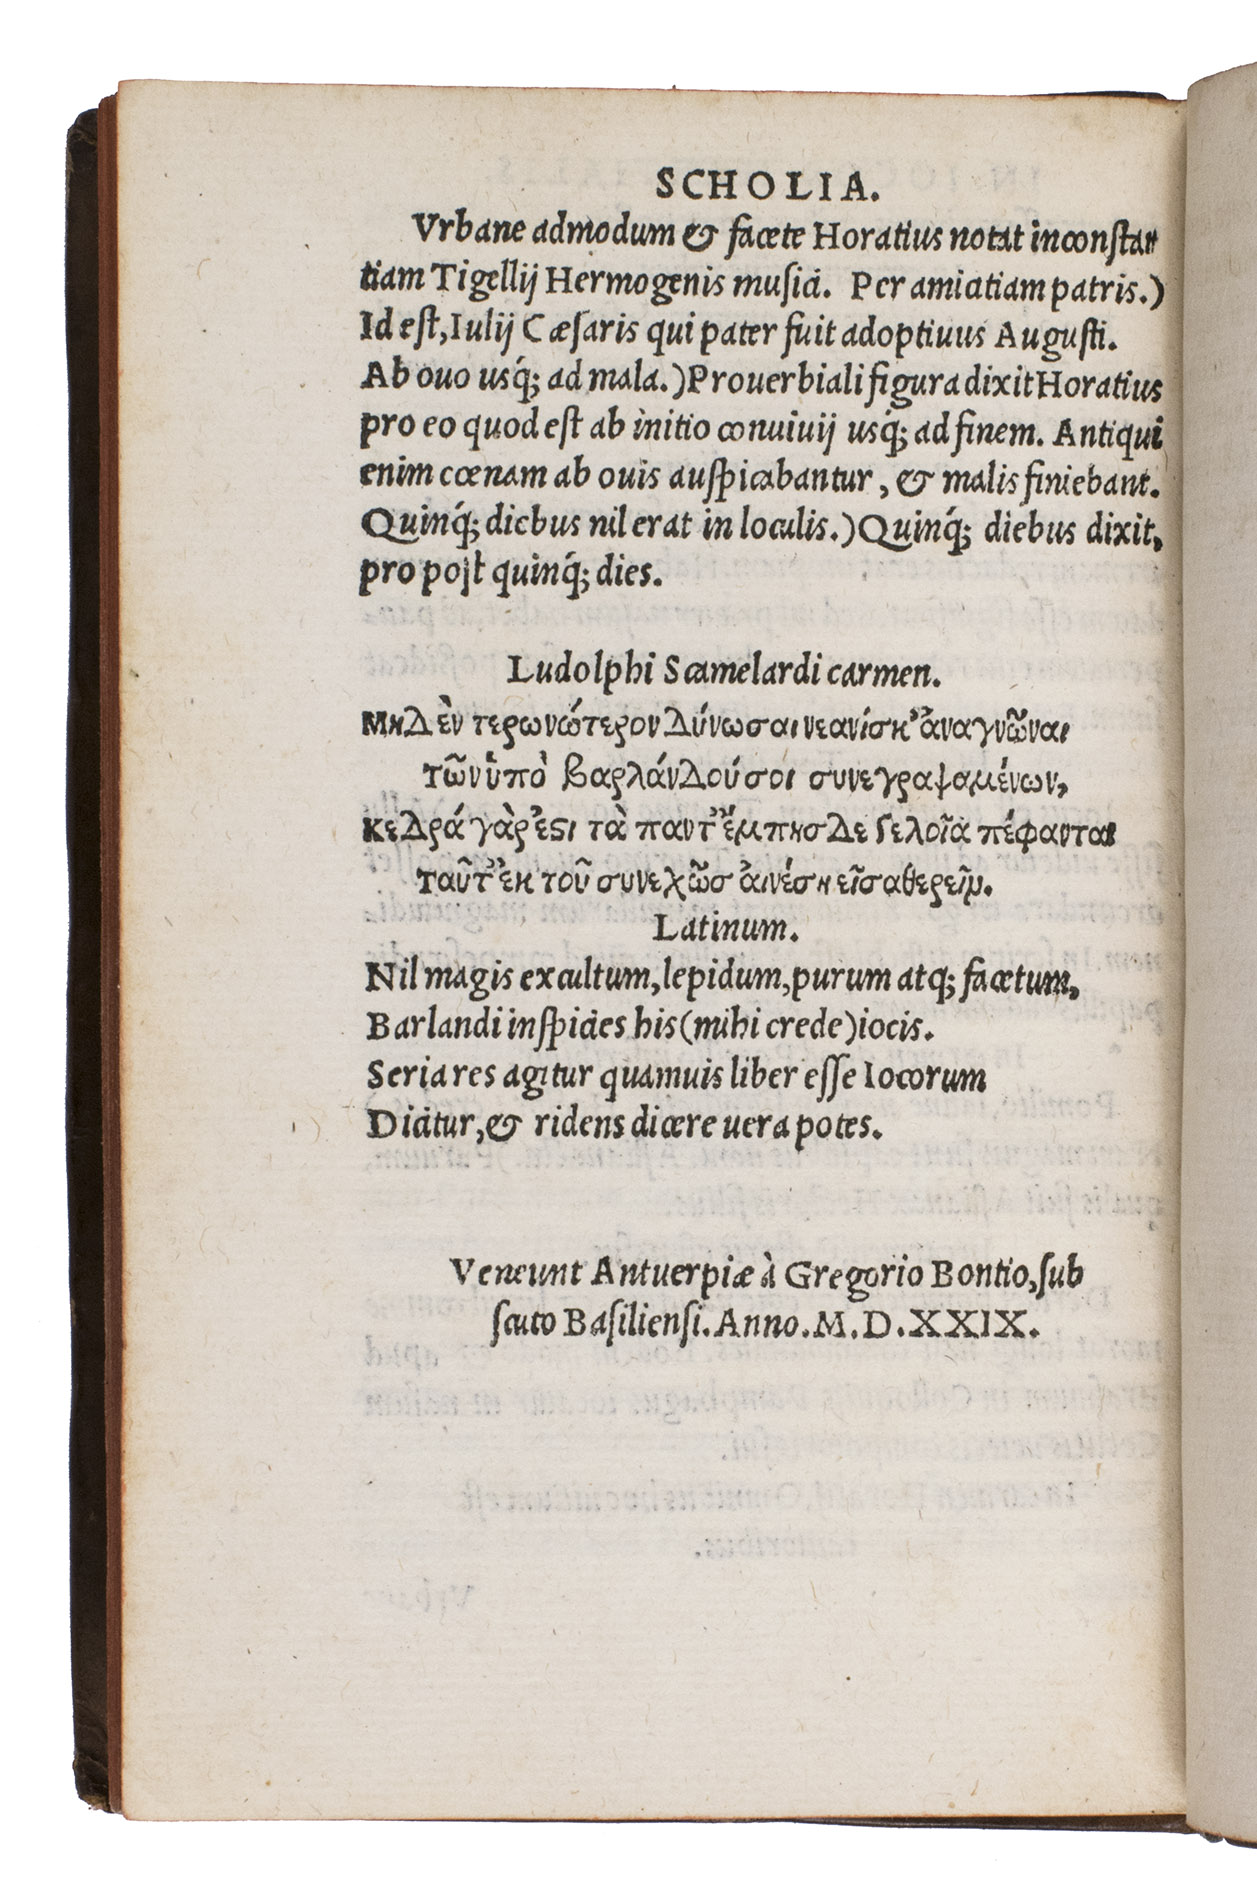 SCHOLIA.
Vrbane admodum & facete Horatius notat inconstan
tiam Tigellij Hermogenis musici. Per amicitiam patris.)
Id est, Iulij Cæsaris qui pater fuit adoptiuus Augusti.
Ab ouo usq́; ad mala.) Prouerbiali figura dixit Horatius
pro eo quod est ab initio conuiuij usq́; ad finem. Antiqui
enim cœnam ab ouis auspicabantur, & malis finiebant.
Quinq́; diebus nil erat in loculis.) Quinq́; diebus dixit,
pro post quinq́; dies.
Ludolphi Scamelardi carmen.
Μηδὲν τερωνώτερον δύνωσαι νεανίσκ' ἀναγνῶναι
τῶν ὑπὸ βαρλάνδουσοι συνεγραψαμένων,
Κεδρά γὰρ ἐστι τὰ παντ' ἔμπησδε γελοῖα πέφανται
ταῦτ' ἐκ τοῦ συνεχῶσ αἰνέσῃ εἶσαθερεῖν.
Latinum.
Nil magis excultum, lepidum, purum atq; facetum,
Barlandi inspicies his (mihi crede) iocis.
Seria res agitur quamuis liber esse Iocorum
Dicitur, & ridens dicere uera potes.
Veneunt Antuerpiæ à Gregorio Bontio, sub
scuto Basiliensi. Anno. M. D. XXIX.